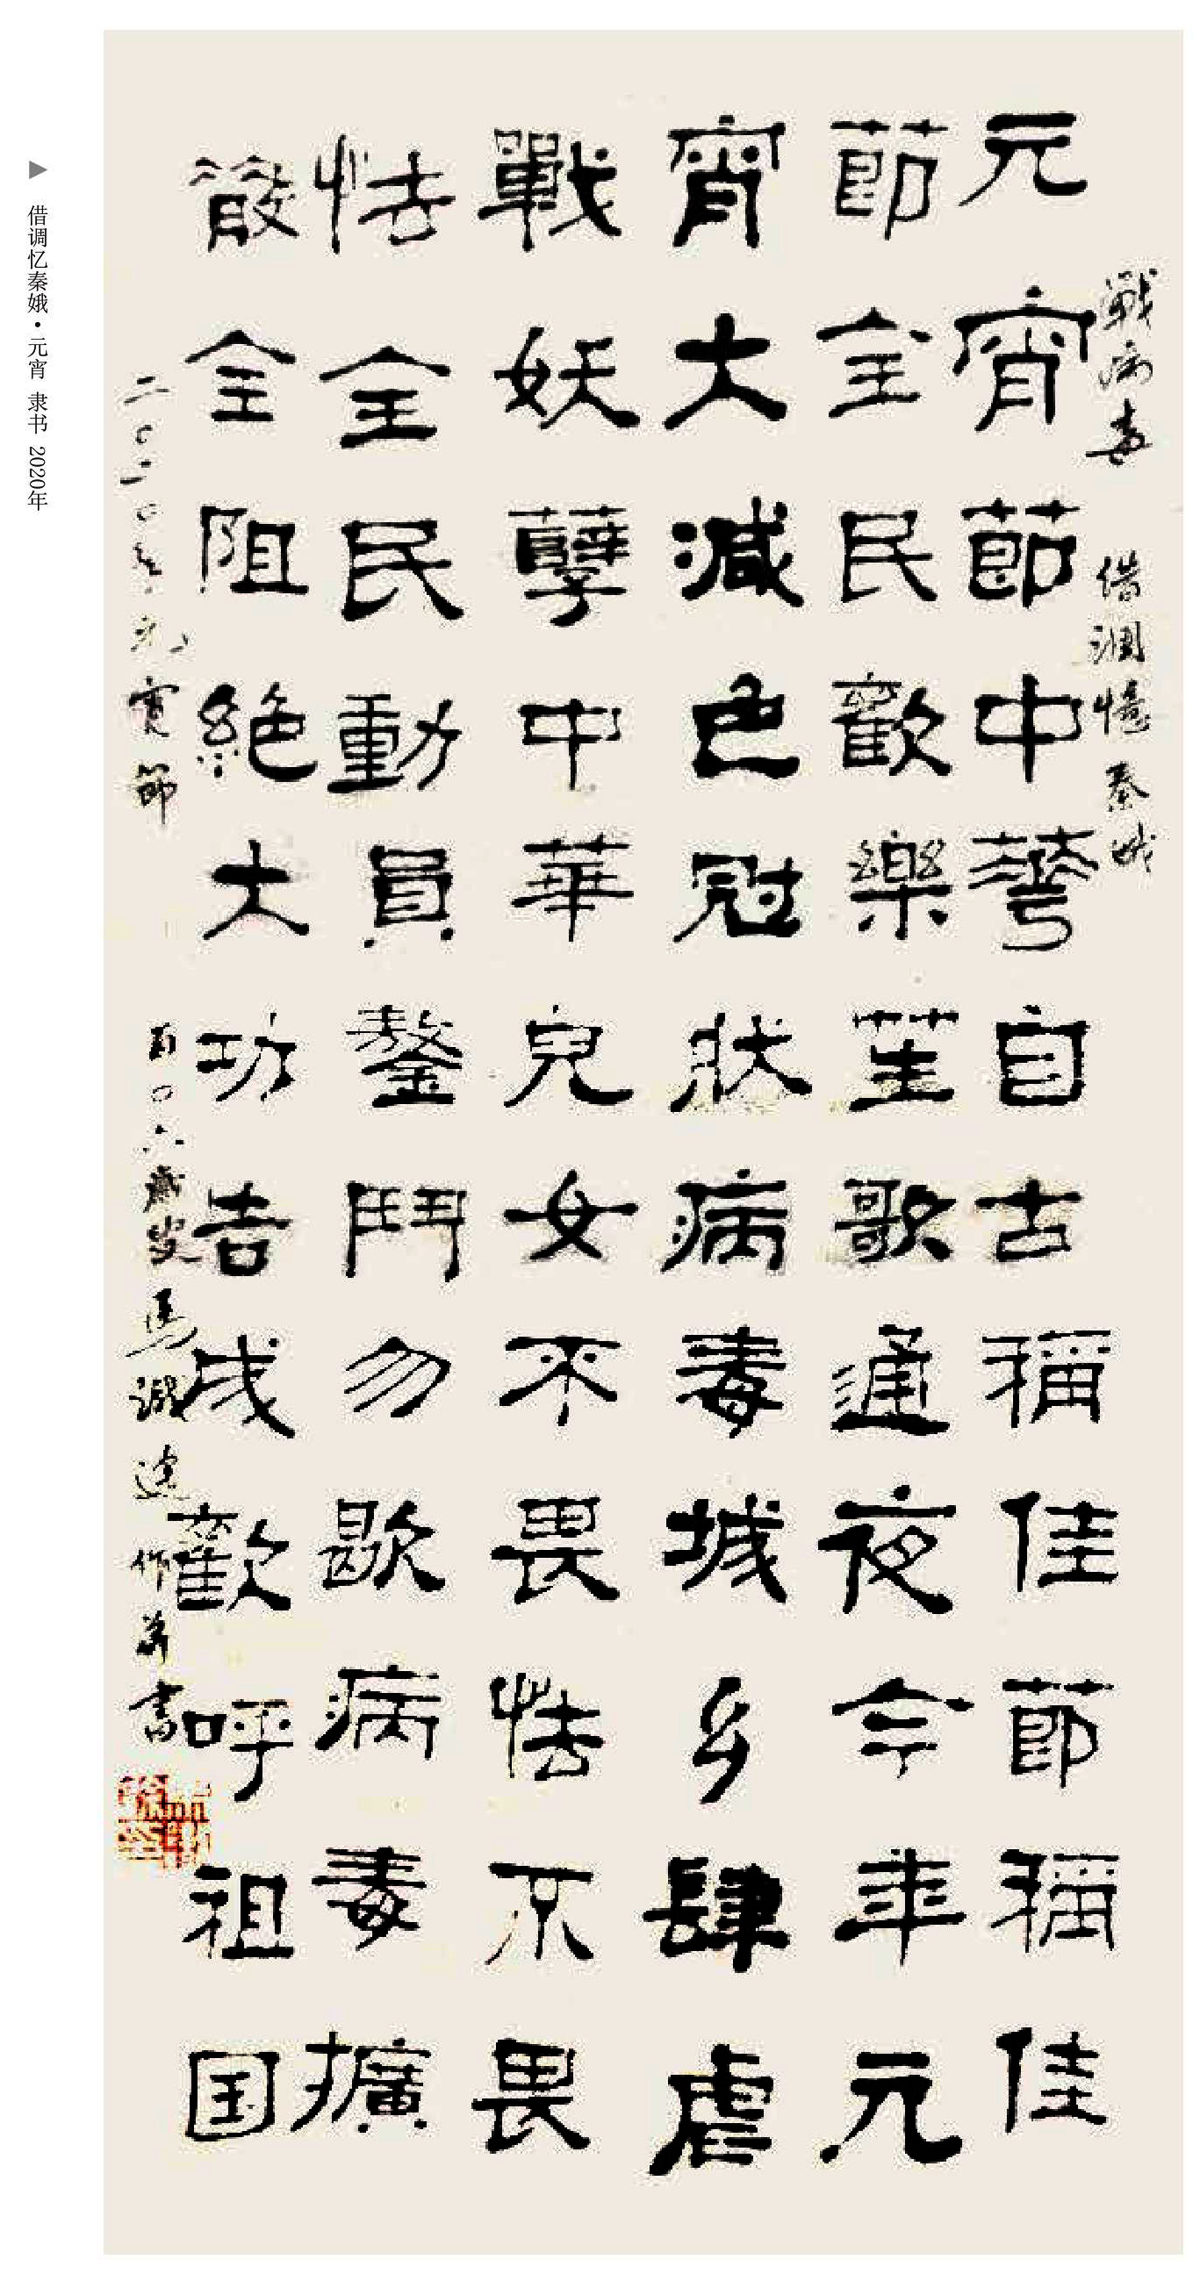 戰病毒 借調憶秦娥
元宵節中華自古稱佳節稱佳
節全民歡樂笙歌通夜今年元
宵大減色冠狀病毒城乡肆虐
戰妖孽中華兒女不畏怯不畏
怯全民動員鏖鬥勿歇病毒擴
散全阻絕大功告成歡呼祖国
二〇二〇年元宵節 百〇六歲叟馬識途作并書
▶ 借调忆秦娥·元宵 隶书 2020年